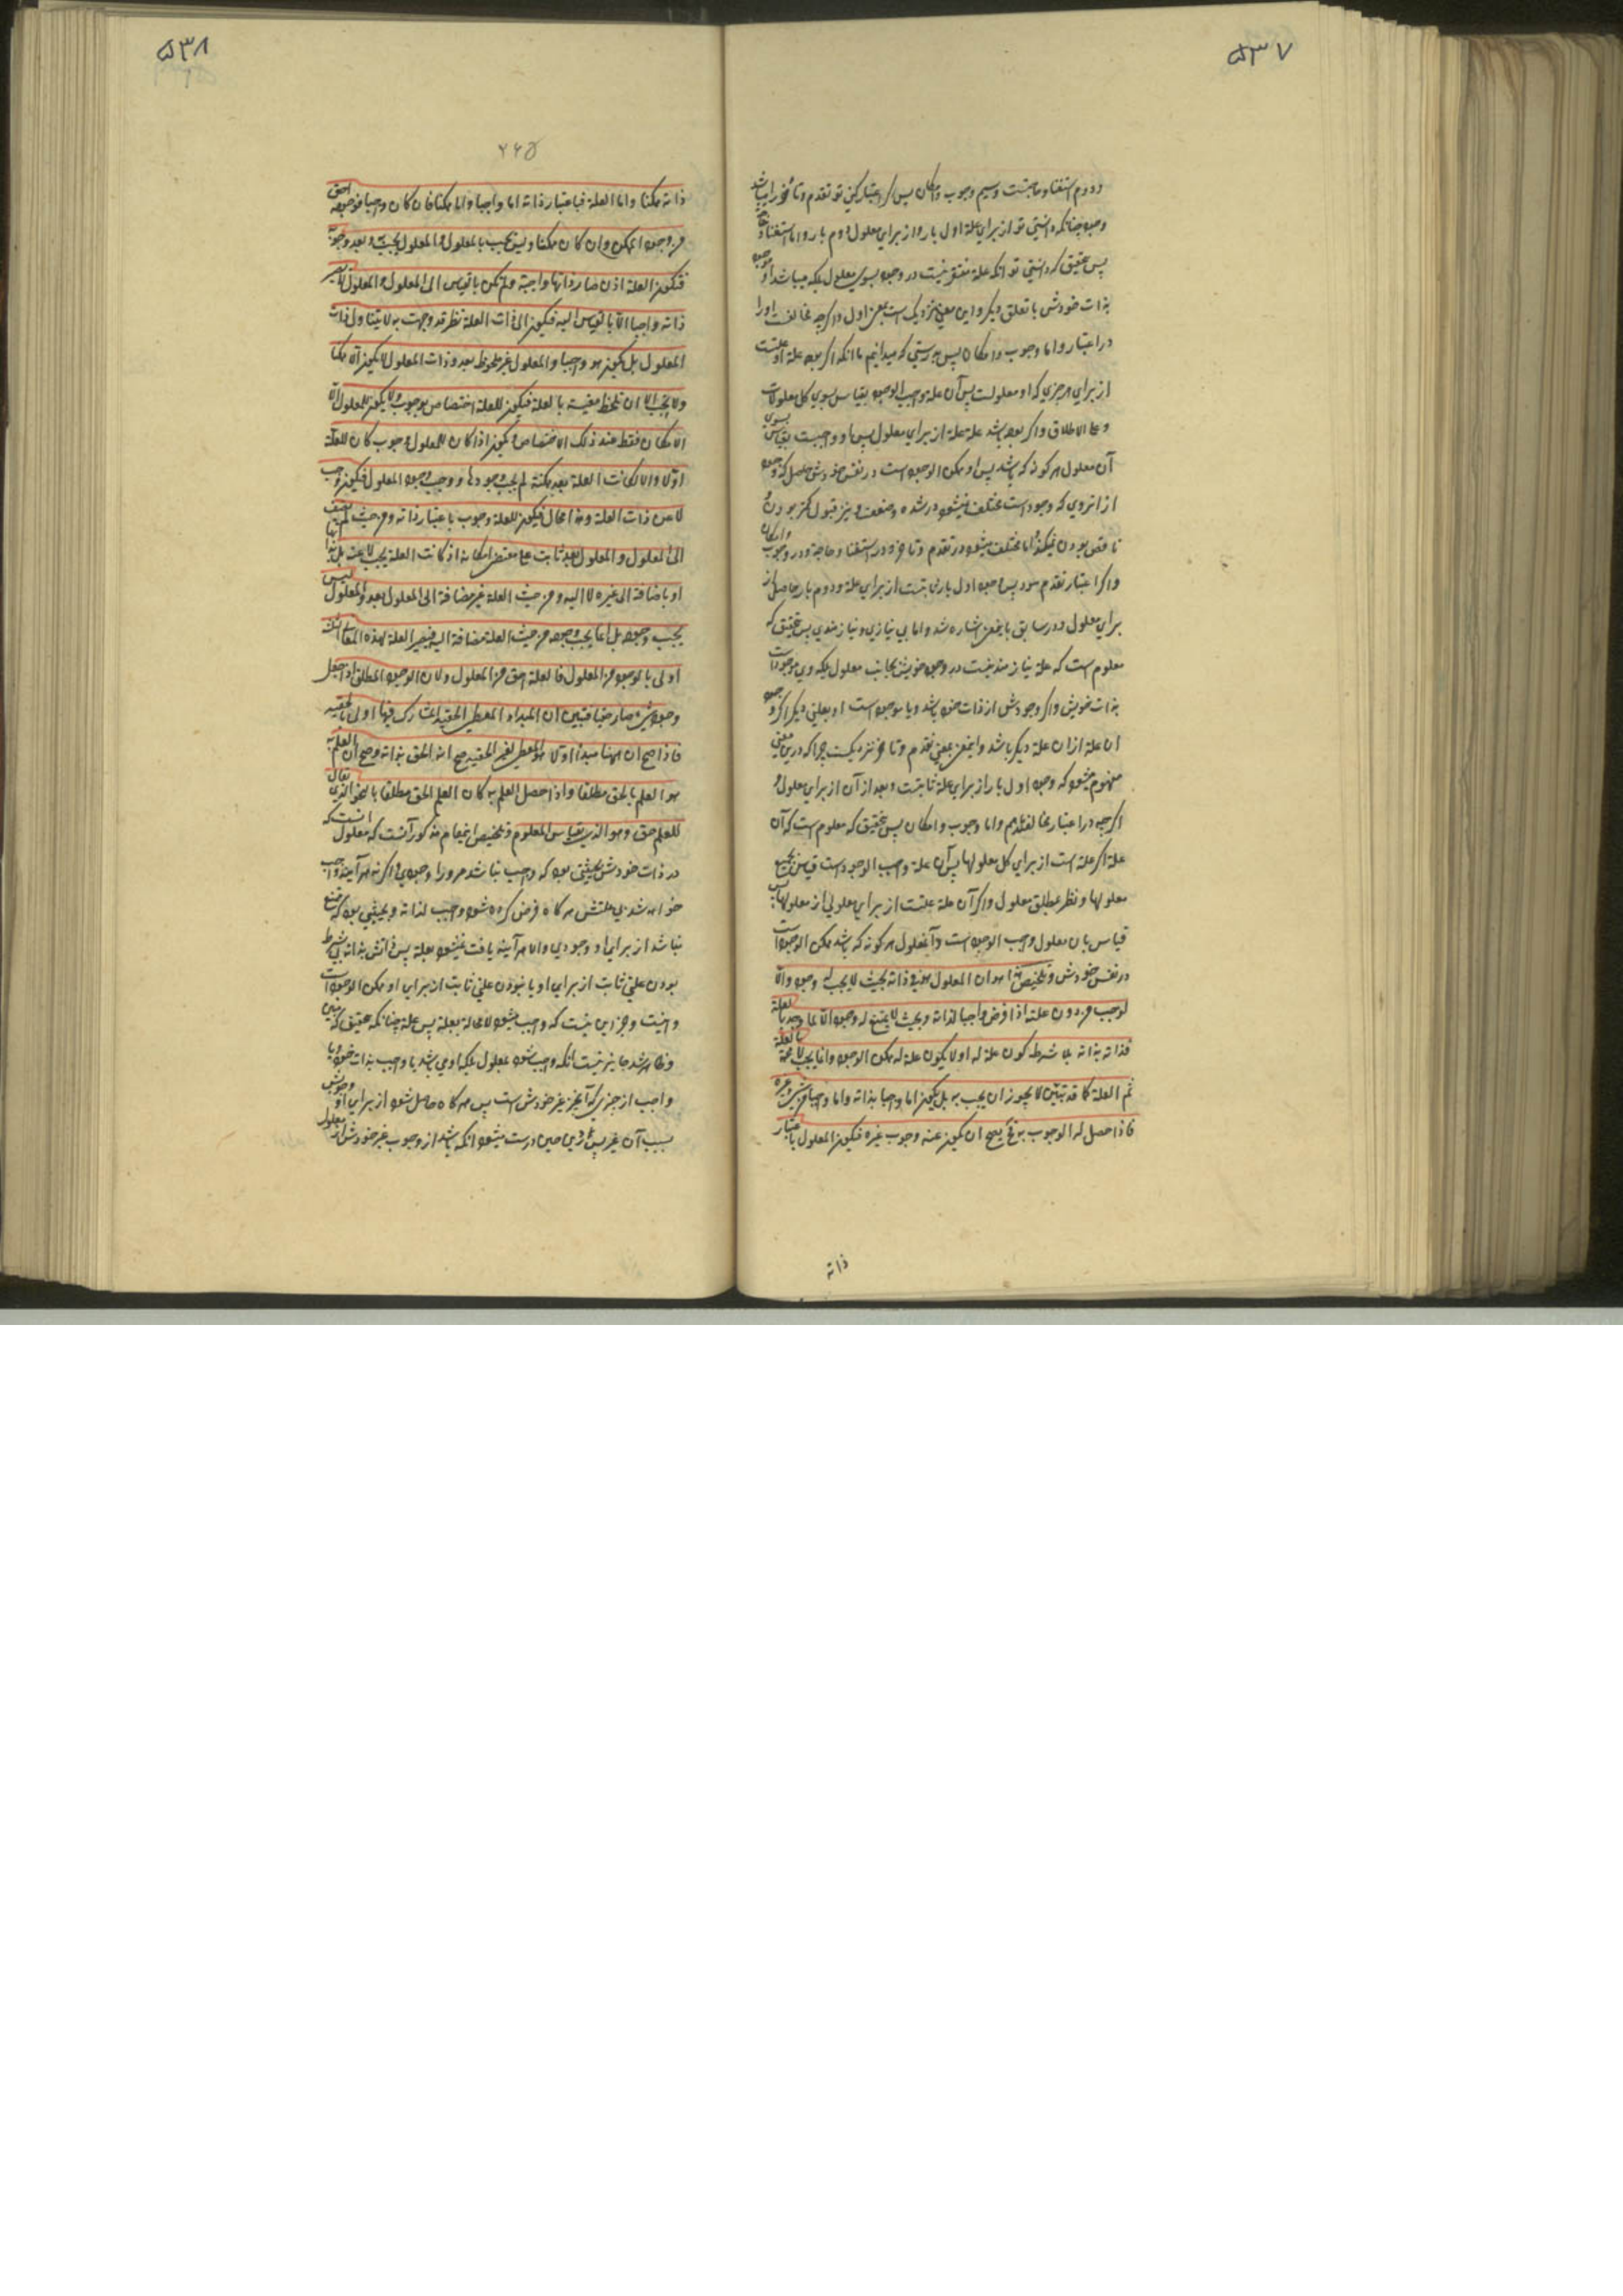 ۵۳۷
دوم استغنا و حاجت و سیم وجوب و امکان پس اگر اعتبار کنی تو تقدم و تأخر را میباشد
وجود چنانکه دانستی تو از برای علة اول بار و از برای معلول دوم بار و اما استغنا و حاجة
پس تحقیق که دانستی تو آنکه علة مفتقر نیست در وجود بسوی معلول بلکه میباشد او موجود
بذات خودش یا تعلق دیگر و این معنی نزدیک است بمعنی اول و اگرچه مخالفست او را
در اعتبار و اما وجوب و امکان پس بدرستی که میدانیم ما آنکه اگر بوده علة او علتست
از برای هر چیزی که او معلولست پس آن علة واجب الوجود بقیاس بسوی کل معلولات
و علی الاطلاق و اگر بوده باشد علة علة از برای معلول پس او واجبست بقیاس بسوی
آن معلول هر گونه که باشد پس او ممکن الوجود است در نفس خودش حاصل که وجود
از انروی که وجود است مختلف نمیشود در شده و ضعف و نیز قبول کمتر بودن و
ناقص بودن نمیکند و اما مختلف میشود در تقدم و تأخر و در استغنا و حاجة و در وجوب و امکان
و اگر اعتبار تقدم شود پس وجود اول بار ثابتست از برای علة و دوم بار حاصل از
برای معلول و در سابق باینمعنی اشاره شد و اما بی نیازی و نیازمندی پس تحقیق که
معلوم است که علة نیازمند نیست در وجود خویش بجانب معلول بلکه وی موجود است
بذات خویش و اگر وجودش از ذات خود باشد و یا موجود است او بعلتی دیگر اگر وجود
آن علة از ان علة دیگر باشد و اینمعنی بمعنی تقدم و تأخر نزدیکست چرا که درین معنی
مفهوم میشود که وجود اول بار از برای علة ثابتست و بعد از آن از برای معلول و
اگرچه در اعتبار مخالفند بهم و اما وجوب و امکان پس تحقیق که معلوم است که آن
علة اگر علة است از برای کل معلولها پس آن علة واجب الوجود است قیاس بجمیع
معلولها و نظر بمطلق معلول و اگر آن علة علتست از برای معلولی از معلولها پس
قیاس بان معلول واجب الوجود است و آنمعلول هر گونه که باشد ممکن الوجود است
در نفس خودش و تلخیص هذا هو ان المعلول هو فی ذاته بحیث لا یجب له وجود و الّا
لوجب من دون علته اذا فرض واجبا لذاته و بحیث لا یمتنع له وجود و الّا لما وجد بالعلة
فذاته بذاته بلا شرط کون علة له او لا کون علة له ممکن الوجود و انما یجب لا محالة بالعلة
ثم العلة کما قد تبین لا یجوز ان یجب به بل یکون اما واجبا بذاته و اما واجبا من شیء غیره
فاذا حصل له الوجوب به فح یصح ان یکون عنه وجوب غیره فیکون المعلول باعتبار
ذاته
۵۳۸
۲۶۵
ذاته ممکنا و اما العلة فباعتبار ذاته اما واجبا و اما ممکنا فان کان واجبا فوجوده احق
من وجود الممکن و ان کان ممکنا و لیس یجب بالمعلول و المعلول یجب به و بعد وجوبه
فتکون العلة اذن صار ذاتها واجبة و لم تکن بالقیاس الی المعلول و المعلول لا یصیر
ذاته واجبا الّا بالقیاس الیه فیکون الی ذات العلة نظر قد وجبت به لا یتناول ذات
المعلول بل یکون هو واجبا و المعلول غیر ملحوظ بعد و ذات المعلول لا یکون الّا ممکنا
و لا یجب الا ان تلحظ مقیسة بالعلة فیکون للعلة اختصاص بوجوب و لا یکون للمعلول الّا
الامکان فقط عند ذلک الاختصاص و یکون اذا کان للمعلول وجوب کان للعلة
اولا و الا لکانت العلة بعد ممکنة لم یجب وجودها و وجب وجود المعلول فیکون وجب
لا عن ذات العلة و هذا محال فیکون للعلة وجوب باعتبار ذاته و من حیث لم یضف
الی المعلول و المعلول بعد ثابت علی مقتضی امکانه اذ کانت العلة یجب لا عنه بل بذاتها
او باضافة الی غیره لا الیه و من حیث العلة غیر مضافة الی المعلول بعد و المعلول لیس
یجب وجوده بل انما یجب وجوده من حیث العلة مضافة الیه فیصیر العلة لهذه المعانی الثلثة
اولی بالوجود من المعلول فالعلة احق من المعلول و لان الوجود المطلق اذا جعل
وجود شیء صار حقیا فبین ان المبداء المعطی للحقیقة المشارک فیها اولی بالحقیة
فاذا صح ان ههنا مبدأ اولا هو المعطی لغیره الحقیة صح انه الحق بذاته و صح ان العلم به
هو العلم بالحق مطلقا و اذا حصل العلم به کان العلم الحق مطلقا بالنحو الذی یقال
للعلم حق و هو الذی بقیاس المعلوم و تلخیص اینمقام مذکور آنست که معلول انست که
در ذات خودش بحیثیتی بود که واجب نباشد مر ورا وجودی و اگر نه هر آینه واجب
خواهد شد بی علتش هر گاه فرض کرده شود واجب لذاته و بحیثیتی بود که ممتنع
نباشد از برای او وجودی و الا هر آینه یافت نمیشود بعلة پس ذاتش بذاته بی شرط
بودن علتی ثابت از برای او یا نبودن علتی ثابت از برای او ممکن الوجود است
و نیست و جز این نیست که واجب میشود لا محالة بعلة پس علة چنانکه تحقیق که مبین
و ظاهر شد جایز نیست آنکه واجب شود بمعلول بلکه او می باشد یا واجب بذات خود و یا
واجب از چیزی که آنچیز غیر خودش است پس هر گاه حاصل شود از برای او وجوبش
بسبب آن غیر پس در این حین درست میشود آنکه باشد از او وجوب غیر خودش از معلول